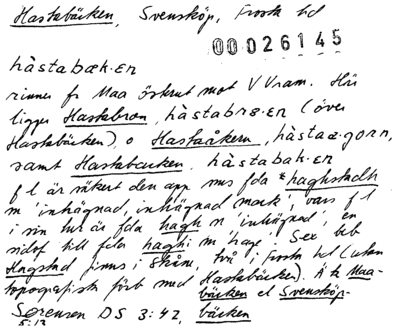 Hastabäcken, Svensköp, Frosta hd
00026145
hàstabæk·en
rinner fr Maa österut mot V Vram. Här
ligger Hastabron, hàstabrω·en (över
Hastabäcken), o Hastaåkern,
samt Hastabacken, hàstabak·en
f l är säkert den app nus fda *haghstadh
m 'inhägnad, inhägnad mark', vars f l
i sin tur är fda hagh n 'inhägnad', en
sidof till fda haghi m 'hage'. Sex beb
Hagstad finns i Skåne, två i Frosta hd (utan
topografisk förb med Hastabäcken). Ä k Maa-
bäcken el Svensköp-
bäcken
Sørensen DS 3:42,